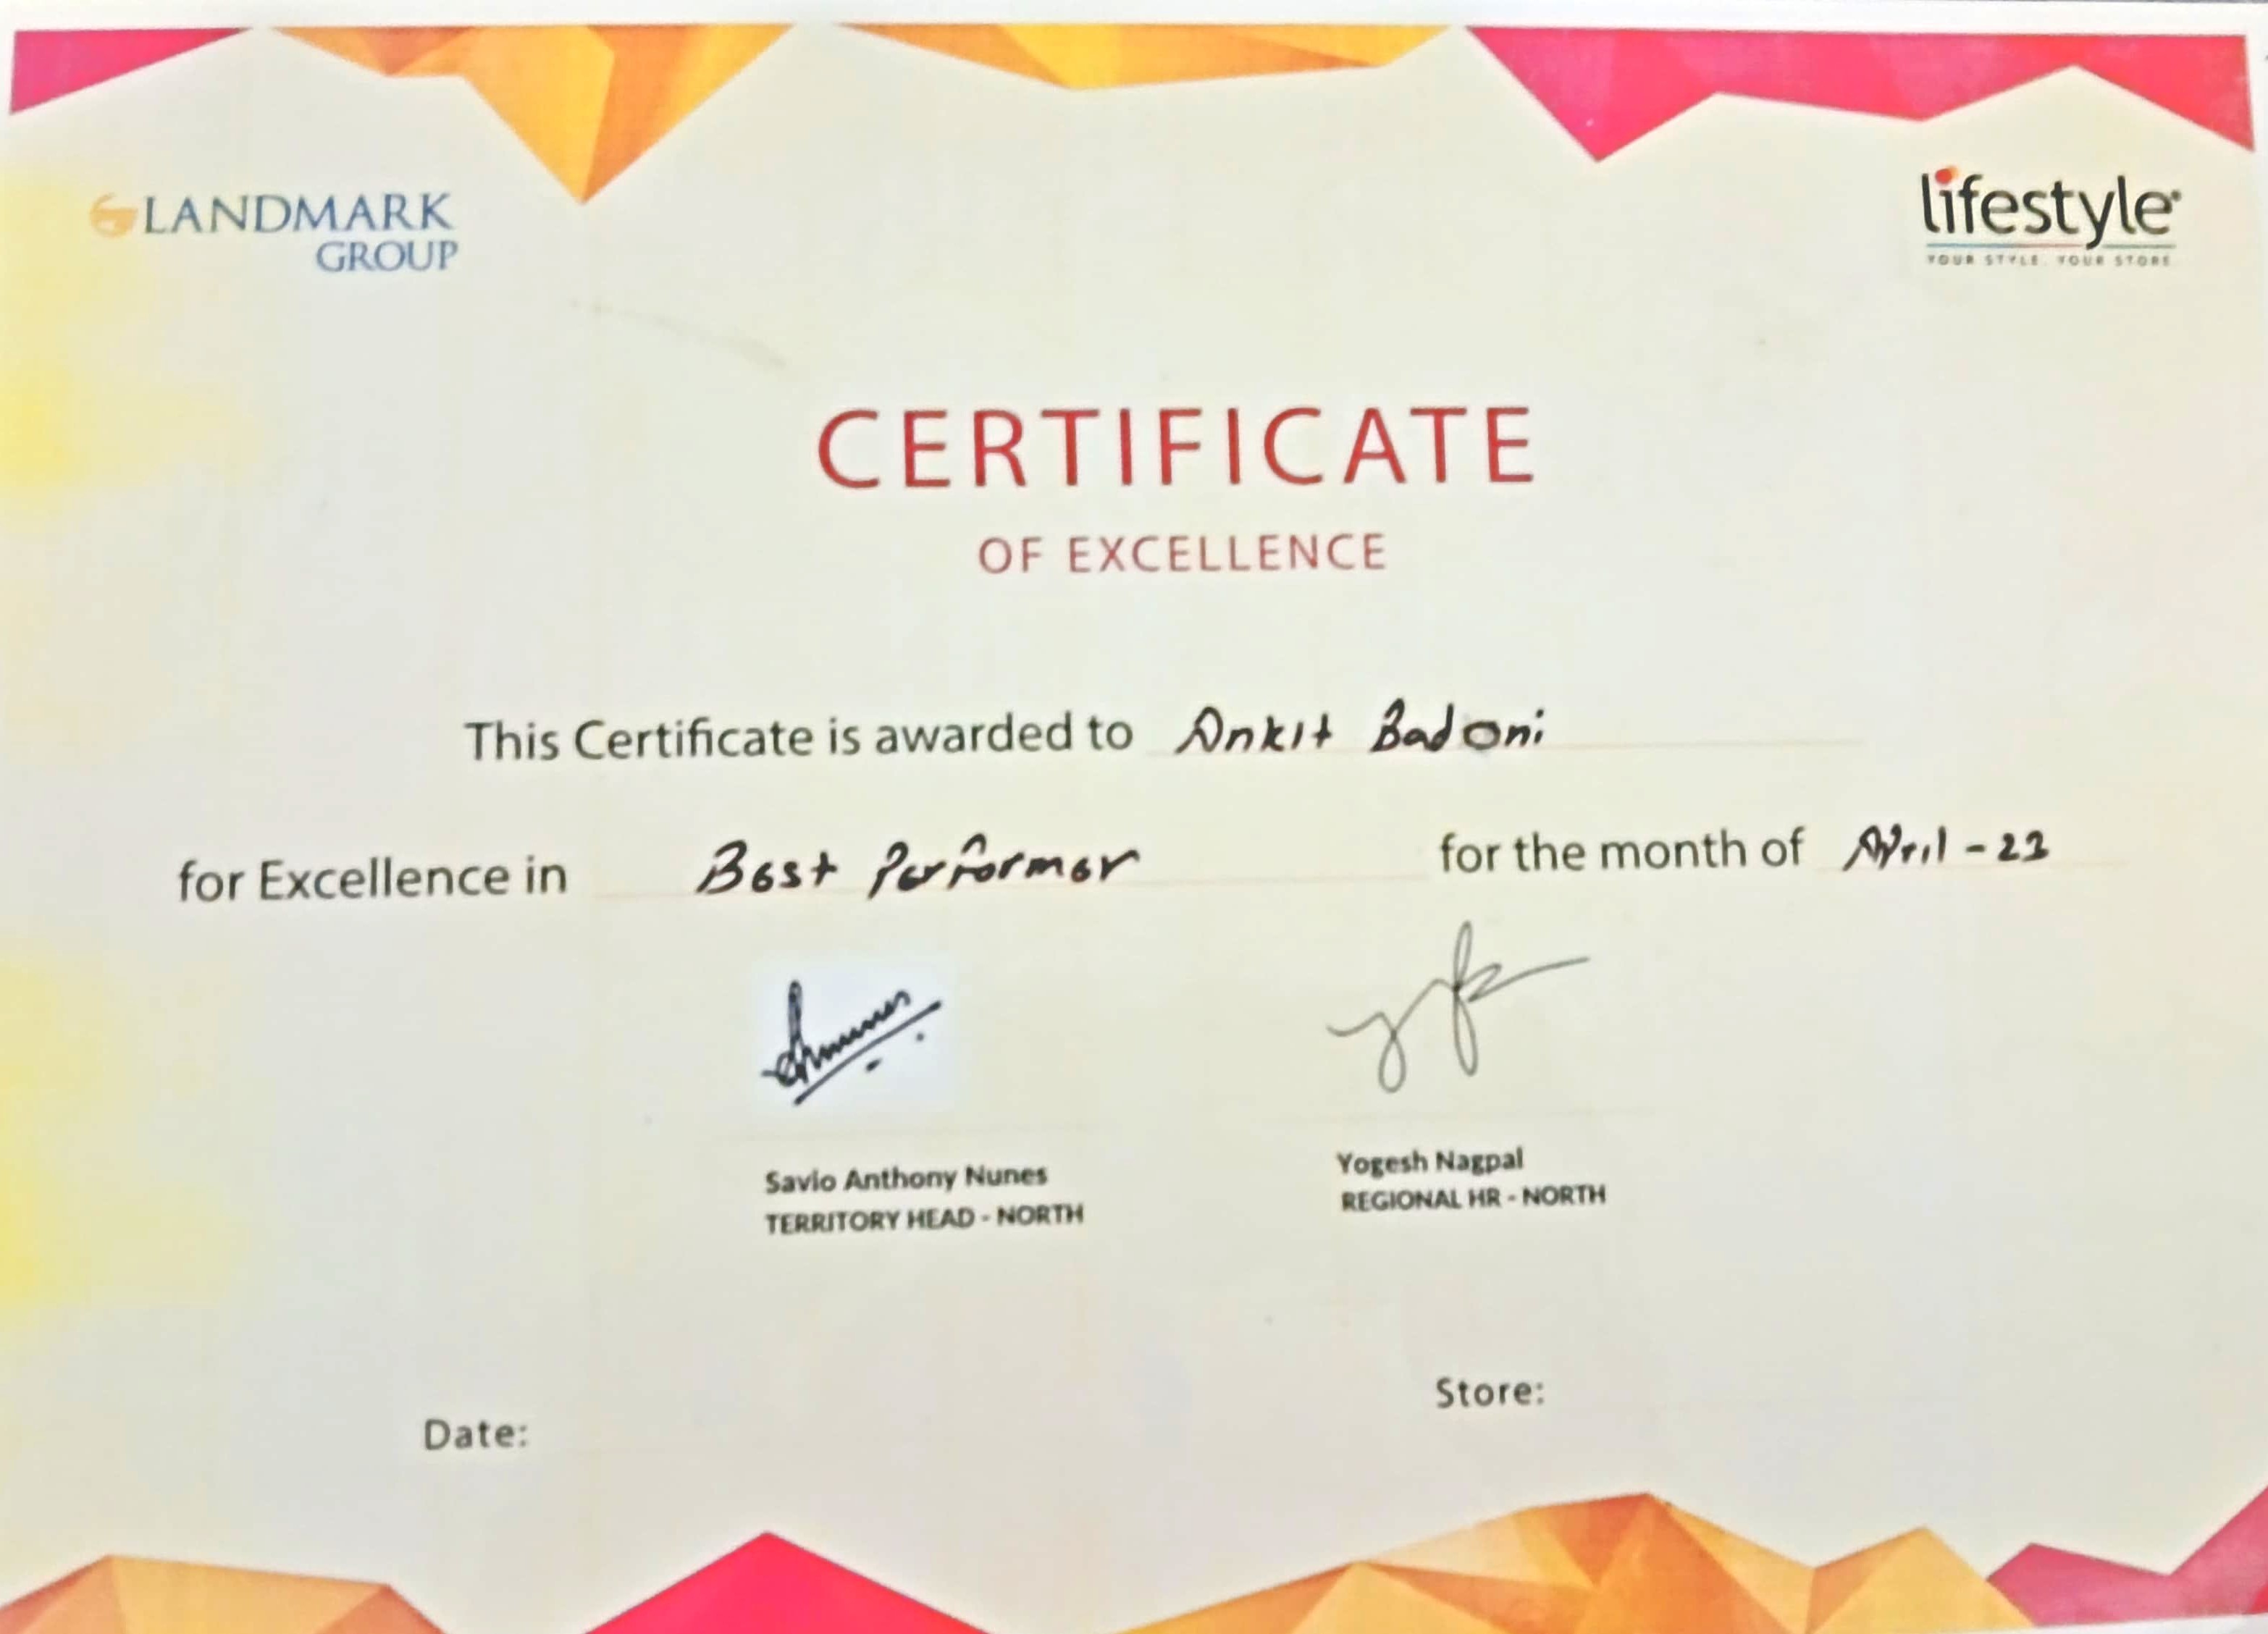 LANDMARK
GROUP
lifestyle
YOUR STYLE. YOUR STORE
CERTIFICATE
OF EXCELLENCE
This Certificate is awarded to Ankit Badoni
for Excellence in Best Performer for the month of April - 23
Savio Anthony Nunes
TERRITORY HEAD - NORTH
Yogesh Nagpal
REGIONAL HR - NORTH
Date:
Store: